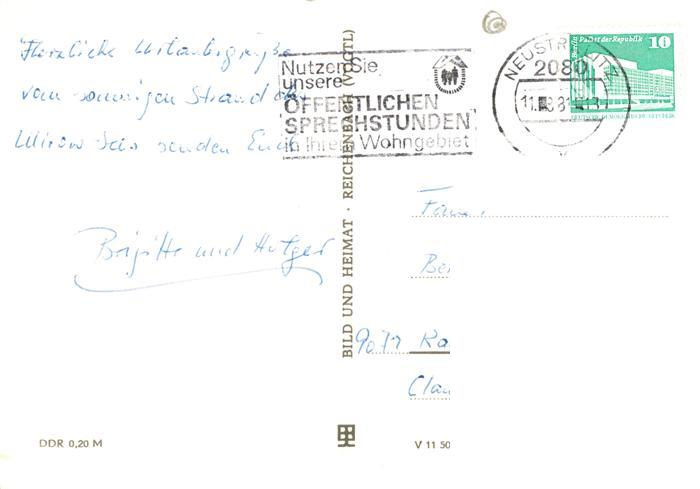 Herzliche Urlaubsgrüße
vom sonnigen Strand des
Mirow Sees senden Euch
Brigitte und Holger
Nutzen Sie
unsere
ÖFFENTLICHEN
SPRECHSTUNDEN
in Ihrem Wohngebiet
NEUSTRELITZ
2080
11.
Berlin Palast der Republik 10
DEUTSCHE DEMOKRATISCHE REPUBLIK
BILD UND HEIMAT · REICHENBACH (VOGTL)
Fam.
Ber
9071 Ka
Clau
DDR 0,20 M
V 11 50